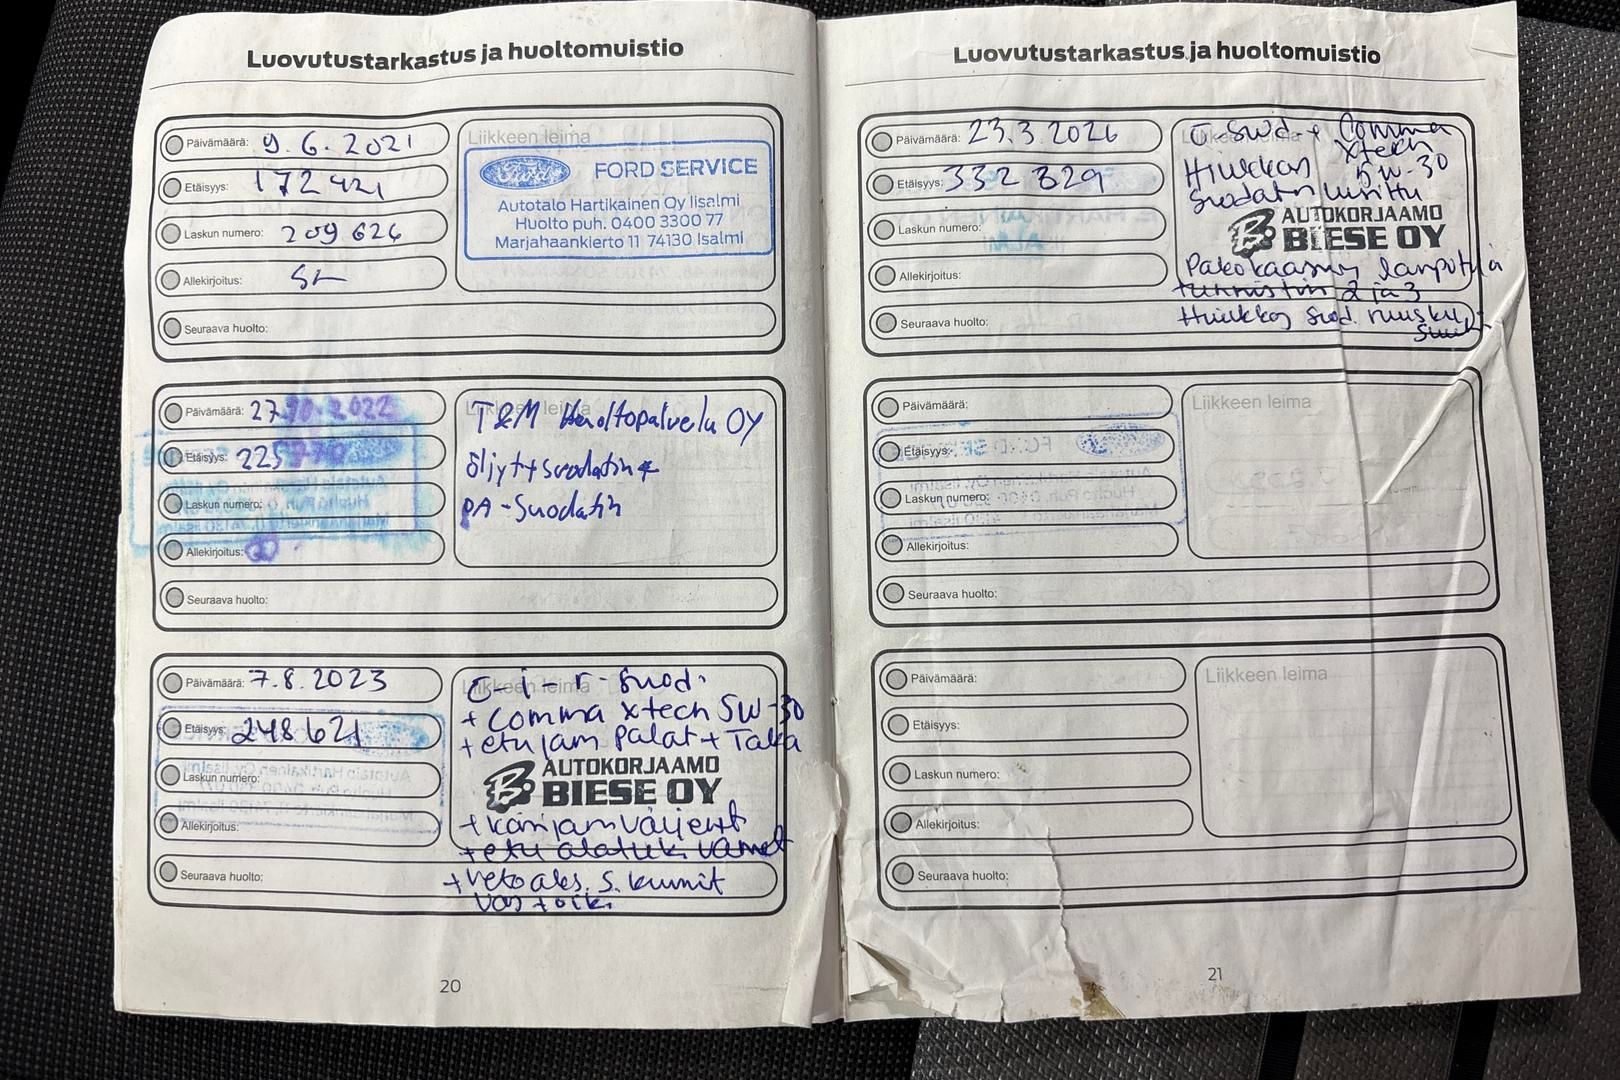 Luovutustarkastus ja huoltomuistio
Päivämäärä: 9.6.2021
Etäisyys: 172421
Laskun numero: 209626
Allekirjoitus:
Seuraava huolto:
Liikkeen leima
Ford
FORD SERVICE
Autotalo Hartikainen Oy Iisalmi
Huolto puh. 0400 3300 77
Marjahaankierto 11 74130 Isalmi
Päivämäärä: 27.10.2022
Etäisyys: 225770
Laskun numero:
Allekirjoitus:
Seuraava huolto:
Liikkeen leima
T&M Huoltopalvelu OY
öljyt+suodatin+
PA-Suodatin
Päivämäärä: 7.8.2023
Etäisyys: 248621
Laskun numero:
Allekirjoitus:
Seuraava huolto:
Liikkeen leima
Ö-i-r-suod.
+ Comma xtech 5W-30
+ etu jam palat + Taka
AUTOKORJAAMO
BIESE OY
+ käsijam vaijerit
+ etu alatuki vanet
+ veto aks. s. kumit
vas + oik.
20
Luovutustarkastus ja huoltomuistio
Päivämäärä: 23.3.2026
Etäisyys: 332829
Laskun numero:
Allekirjoitus:
Seuraava huolto:
Ö-suod + Comma
xtech
5W-30
Hiukkas
suodatin uusittu
AUTOKORJAAMO
BIESE OY
Pakokaasun lämpötila
tunnistin 2 ja 3
Hiukkas suod.
Päivämäärä:
Etäisyys:
Laskun numero:
Allekirjoitus:
Seuraava huolto:
Liikkeen leima
Päivämäärä:
Etäisyys:
Laskun numero:
Allekirjoitus:
Seuraava huolto:
Liikkeen leima
21